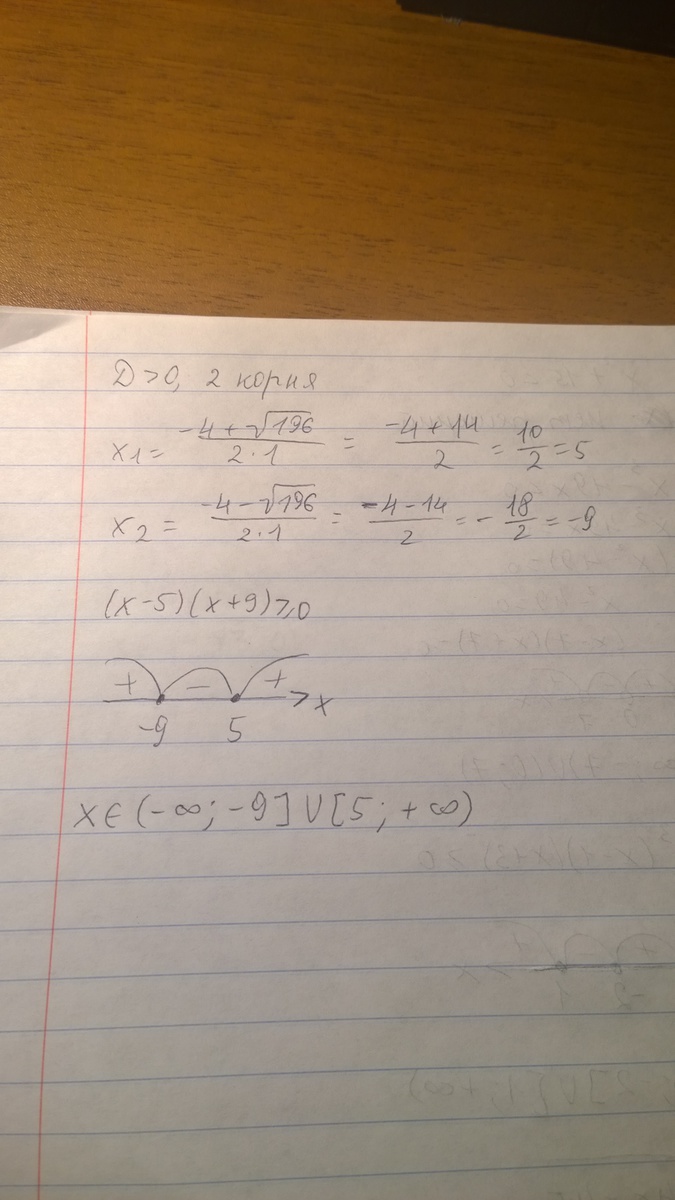 D>0, 2 корня
x1 = (-4+√196)/(2·1) = (-4+14)/2 = 10/2 = 5
x2 = (-4-√196)/(2·1) = (-4-14)/2 = -18/2 = -9
(x-5)(x+9)≥0
+ - + x
-9 5
x∈(-∞; -9]∪[5; +∞)